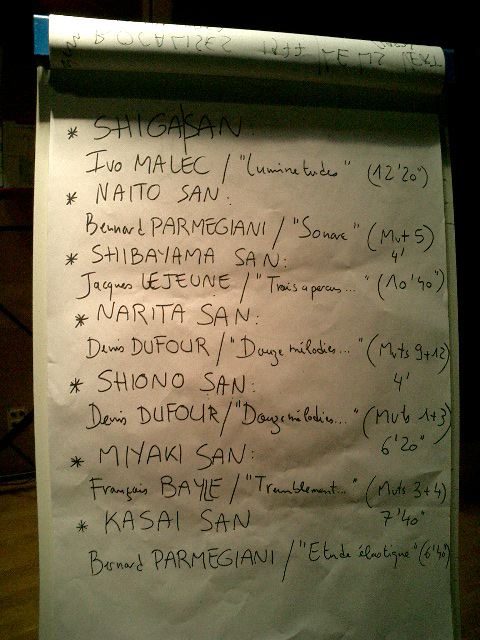 VOCALISES
* SHIGA SAN:
Ivo MALEC / "Lumine tudes" (12'20")
* NAITO SAN:
Bernard PARMEGIANI / "Sonare" (Mvt 5)
4'
* SHIBAYAMA SAN:
Jacques LEJEUNE / "Trois aperçus..." (10'40")
* NARITA SAN:
Denis DUFOUR / "Douze mélodies..." (Mvts 9+12)
4'
* SHIONO SAN:
Denis DUFOUR / "Douze mélodies..." (Mvts 1+3)
6'20"
* MIYAKI SAN:
François BAYLE / "Tremblement..." (Mvts 3+4)
7'40"
* KASAI SAN
Bernard PARMEGIANI / "Etude élastique" (6'40")